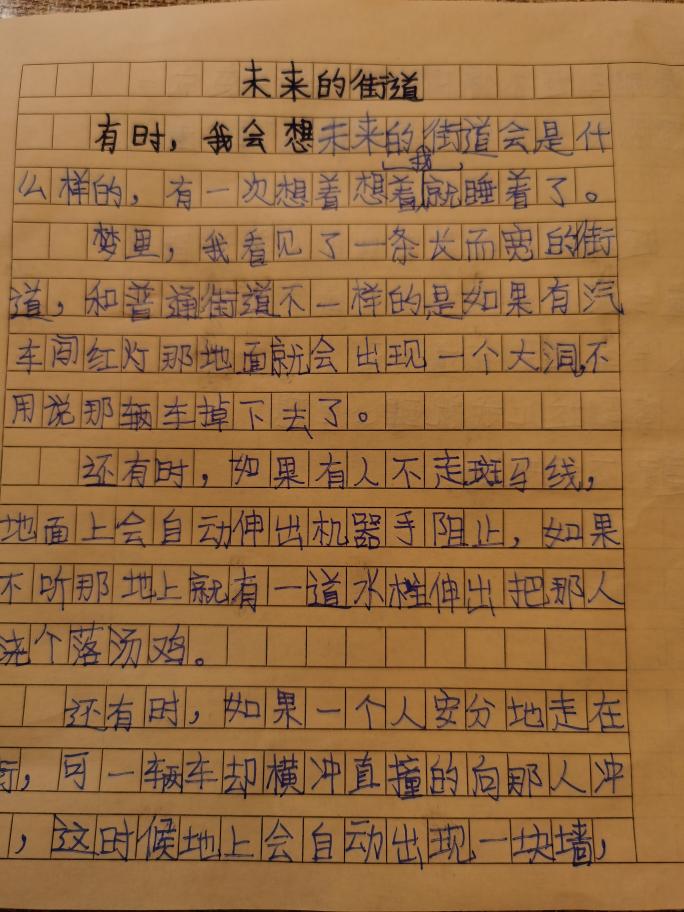 未来的街道
有时，我会想未来的街道会是什
么样的，有一次想着想着我就睡着了。
梦里，我看见了一条长而宽的街
道，和普通街道不一样的是如果有汽
车闯红灯那地面就会出现一个大洞，不
用说那辆车掉下去了。
还有时，如果有人不走斑马线，
地面上会自动伸出机器手阻止，如果
不听那地上就有一道水柱伸出把那人
浇个落汤鸡。
还有时，如果一个人安分地走在
街，可一辆车却横冲直撞的向那人冲
，这时候地上会自动出现一块墙，